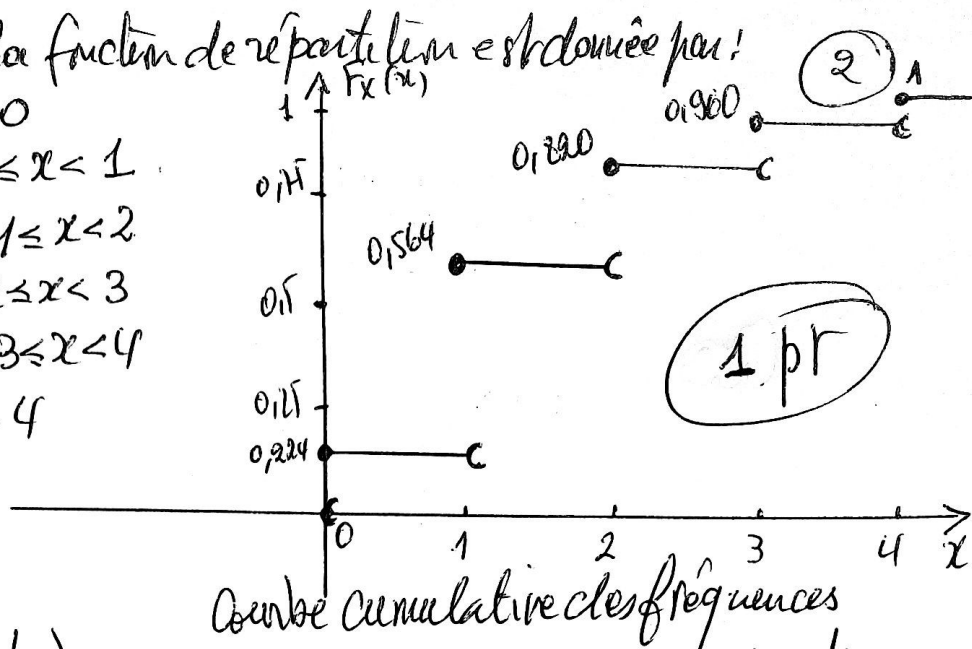 la fonction de répartition est donnée par :
2
0
≤ x < 1
1 ≤ x < 2
≤ x < 3
3 ≤ x < 4
4
Fx(x)
1
0,75
0,5
0,25
0,224
0,564
0,820
0,960
1
1 pt
0 1 2 3 4 x
Courbe cumulative des fréquences